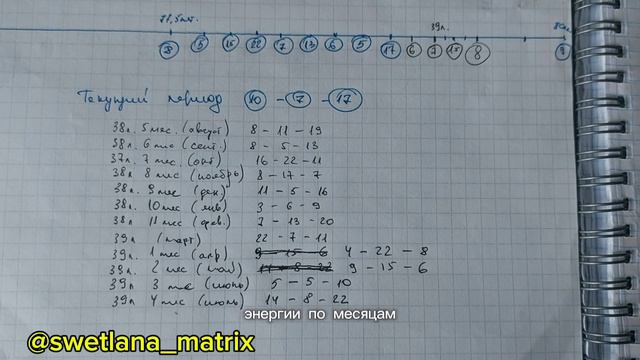 39л.
5 15 22 7 13 6 5 17 6 7 15 8 9
Текущий период 10 - 7 - 17
38л. 5 мес. (август) 8 - 11 - 19
38л. 6 мес (сент.) 8 - 5 - 13
37л. 7 мес. (окт) 16 - 22 - 11
38л 8 мес (ноябрь) 8 - 17 - 7
38л. 9 мес (дек.) 11 - 5 - 16
38л. 10 мес (янв) 3 - 6 - 9
38л 11 мес (фев.) 7 - 13 - 20
39л (март) 22 - 7 - 11
39л. 1 мес (апр) 9 - 15 - 6 4 - 22 - 8
39л. 2 мес (май) 14 - 8 - 22 9 - 15 - 6
39л 3 мес (июнь) 5 - 5 - 10
39л 4 мес (июль) 14 - 8 - 22
энергии по месяцам
@swetlana_matrix